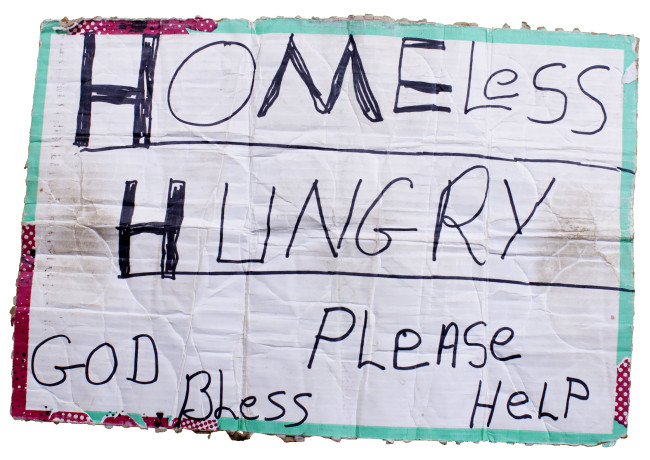 HOMELeSS
HUNGRY
PLeASe
GOD
BLeSS HeLP